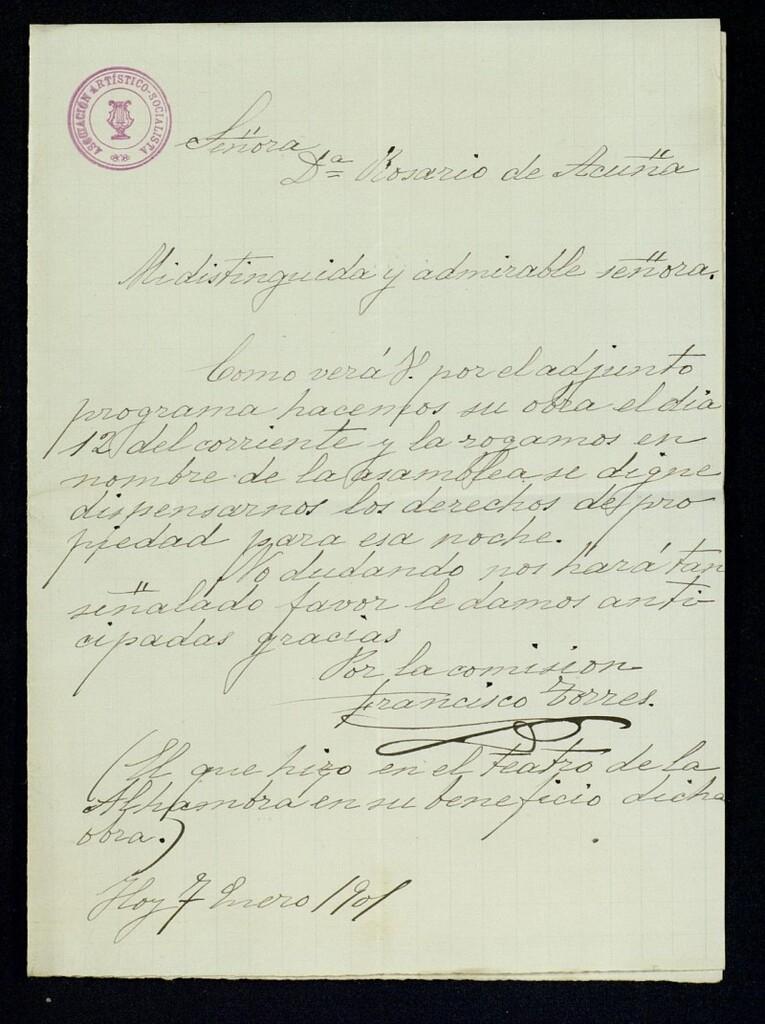 ASOCIACIÓN ARTÍSTICO-SOCIALISTA
Señora
Dª Rosario de Acuña
Mi distinguida y admirable señora.
Como verá V. por el adjunto
programa hacemos su obra el dia
12 del corriente y la rogamos en
nombre de la asamblea se digne
dispensarnos los derechos de pro
piedad para esa noche.
No dudando nos hará tan
señalado favor le damos anti-
cipadas gracias
Por la comision
Francisco Torres.
(El que hizo en el teatro de la
Alhambra en su beneficio dicha
obra.)
Hoy 7 Enero 1901